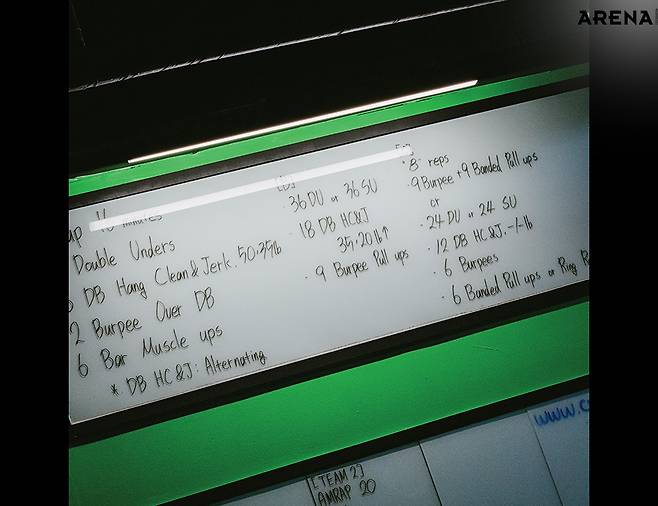 ARENA
ap 16 minutes
Double Unders
DB Hang Clean & Jerk. 50·35lb
2 Burpee Over DB
6 Bar Muscle ups
* DB HC&J: Alternating
· 36 DU or 36 SU
· 18 DB HC&J
35·20lb↑
· 9 Burpee Pull ups
· "8" reps
· 9 Burpee + 9 Banded Pull ups
or
· 24 DU or 24 SU
· 12 DB HC&J. -/-lb
· 6 Burpees
· 6 Banded Pull ups or Ring R
www.c
[TEAM 2]
AMRAP 20